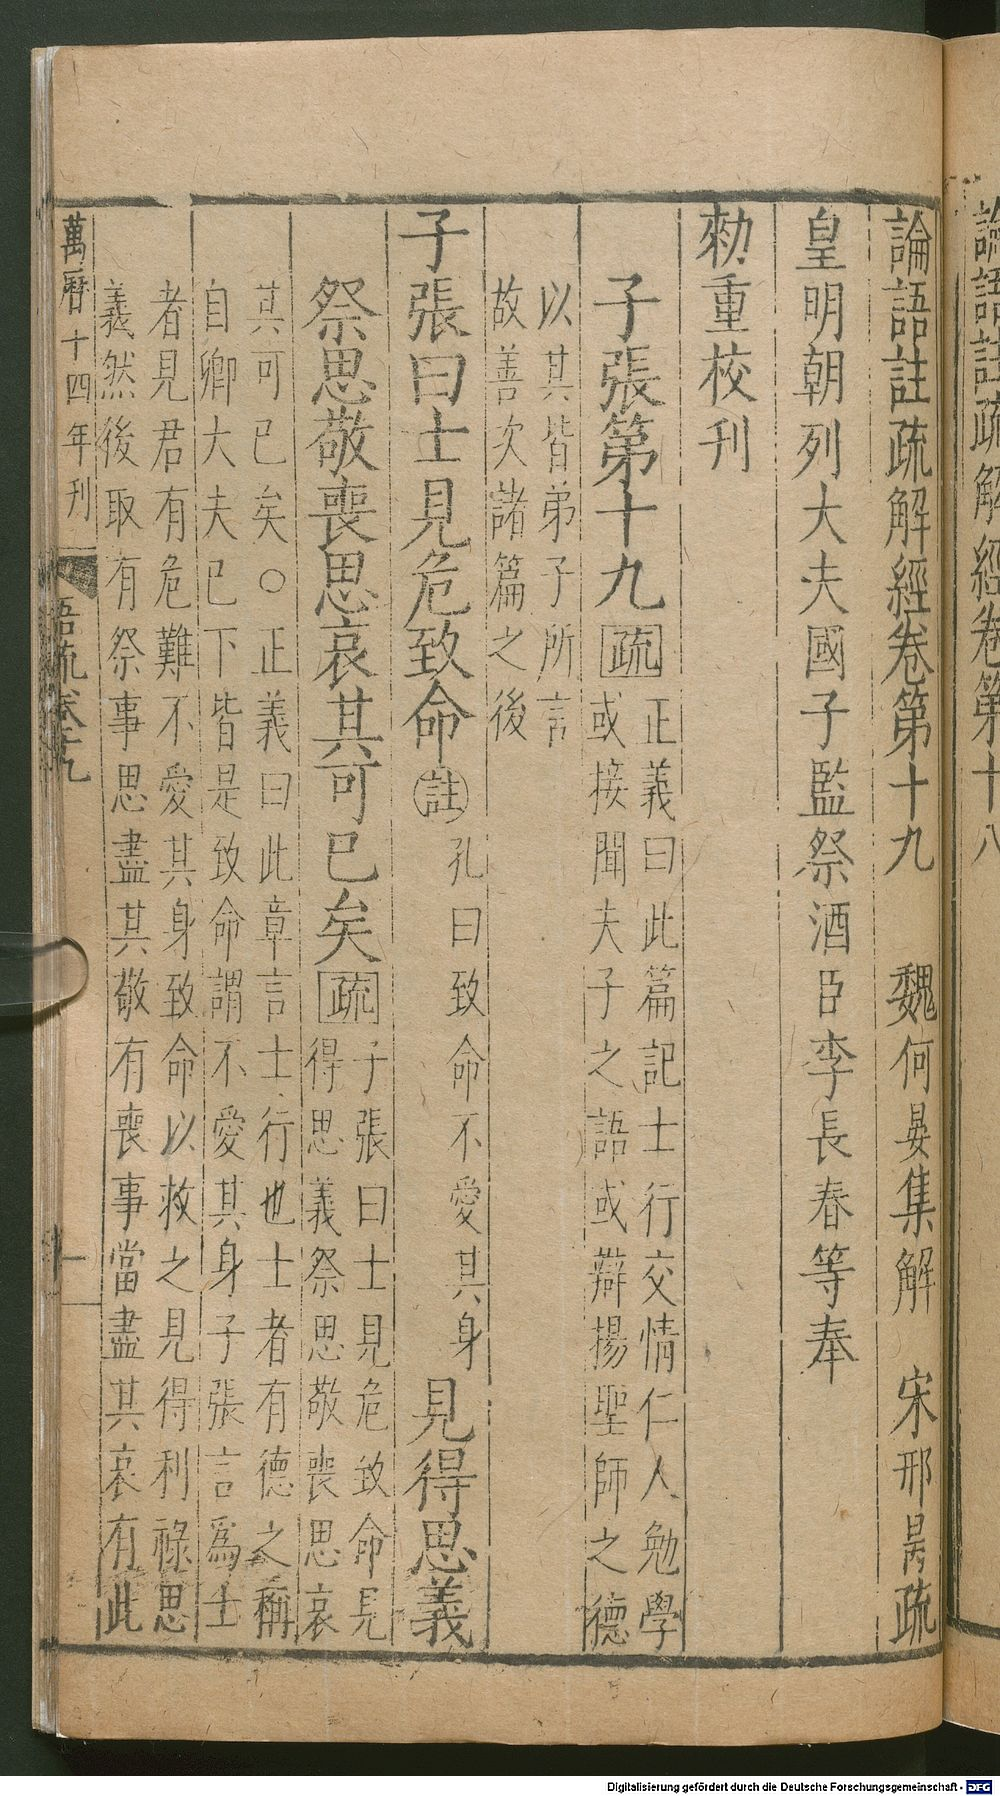 論語註疏解經卷第十八
論語註疏解經卷第十九　魏何晏集解　宋邢昺疏
皇明朝列大夫國子監祭酒臣李長春等奉
勑重校刊
子張第十九疏正義曰此篇記士行交情仁人勉學
或接聞夫子之語或辯揚聖師之德
以其皆弟子所言
故善次諸篇之後
子張曰士見危致命註孔曰致命不愛其身見得思義
祭思敬喪思哀其可已矣疏子張曰士見危致命見
得思義祭思敬喪思哀
其可已矣○正義曰此章言士行也士者有德之稱
自卿大夫已下皆是致命謂不愛其身子張言爲士
者見君有危難不愛其身致命以救之見得利祿思
義然後取有祭事思盡其敬有喪事當盡其哀有此
萬曆十四年刊
語疏卷十九
一
Digitalisierung gefördert durch die Deutsche Forschungsgemeinschaft - DFG